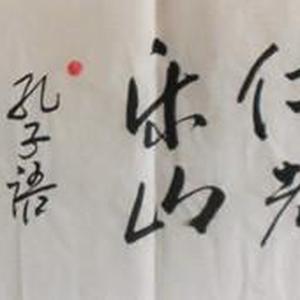 仁者
乐山
孔子语